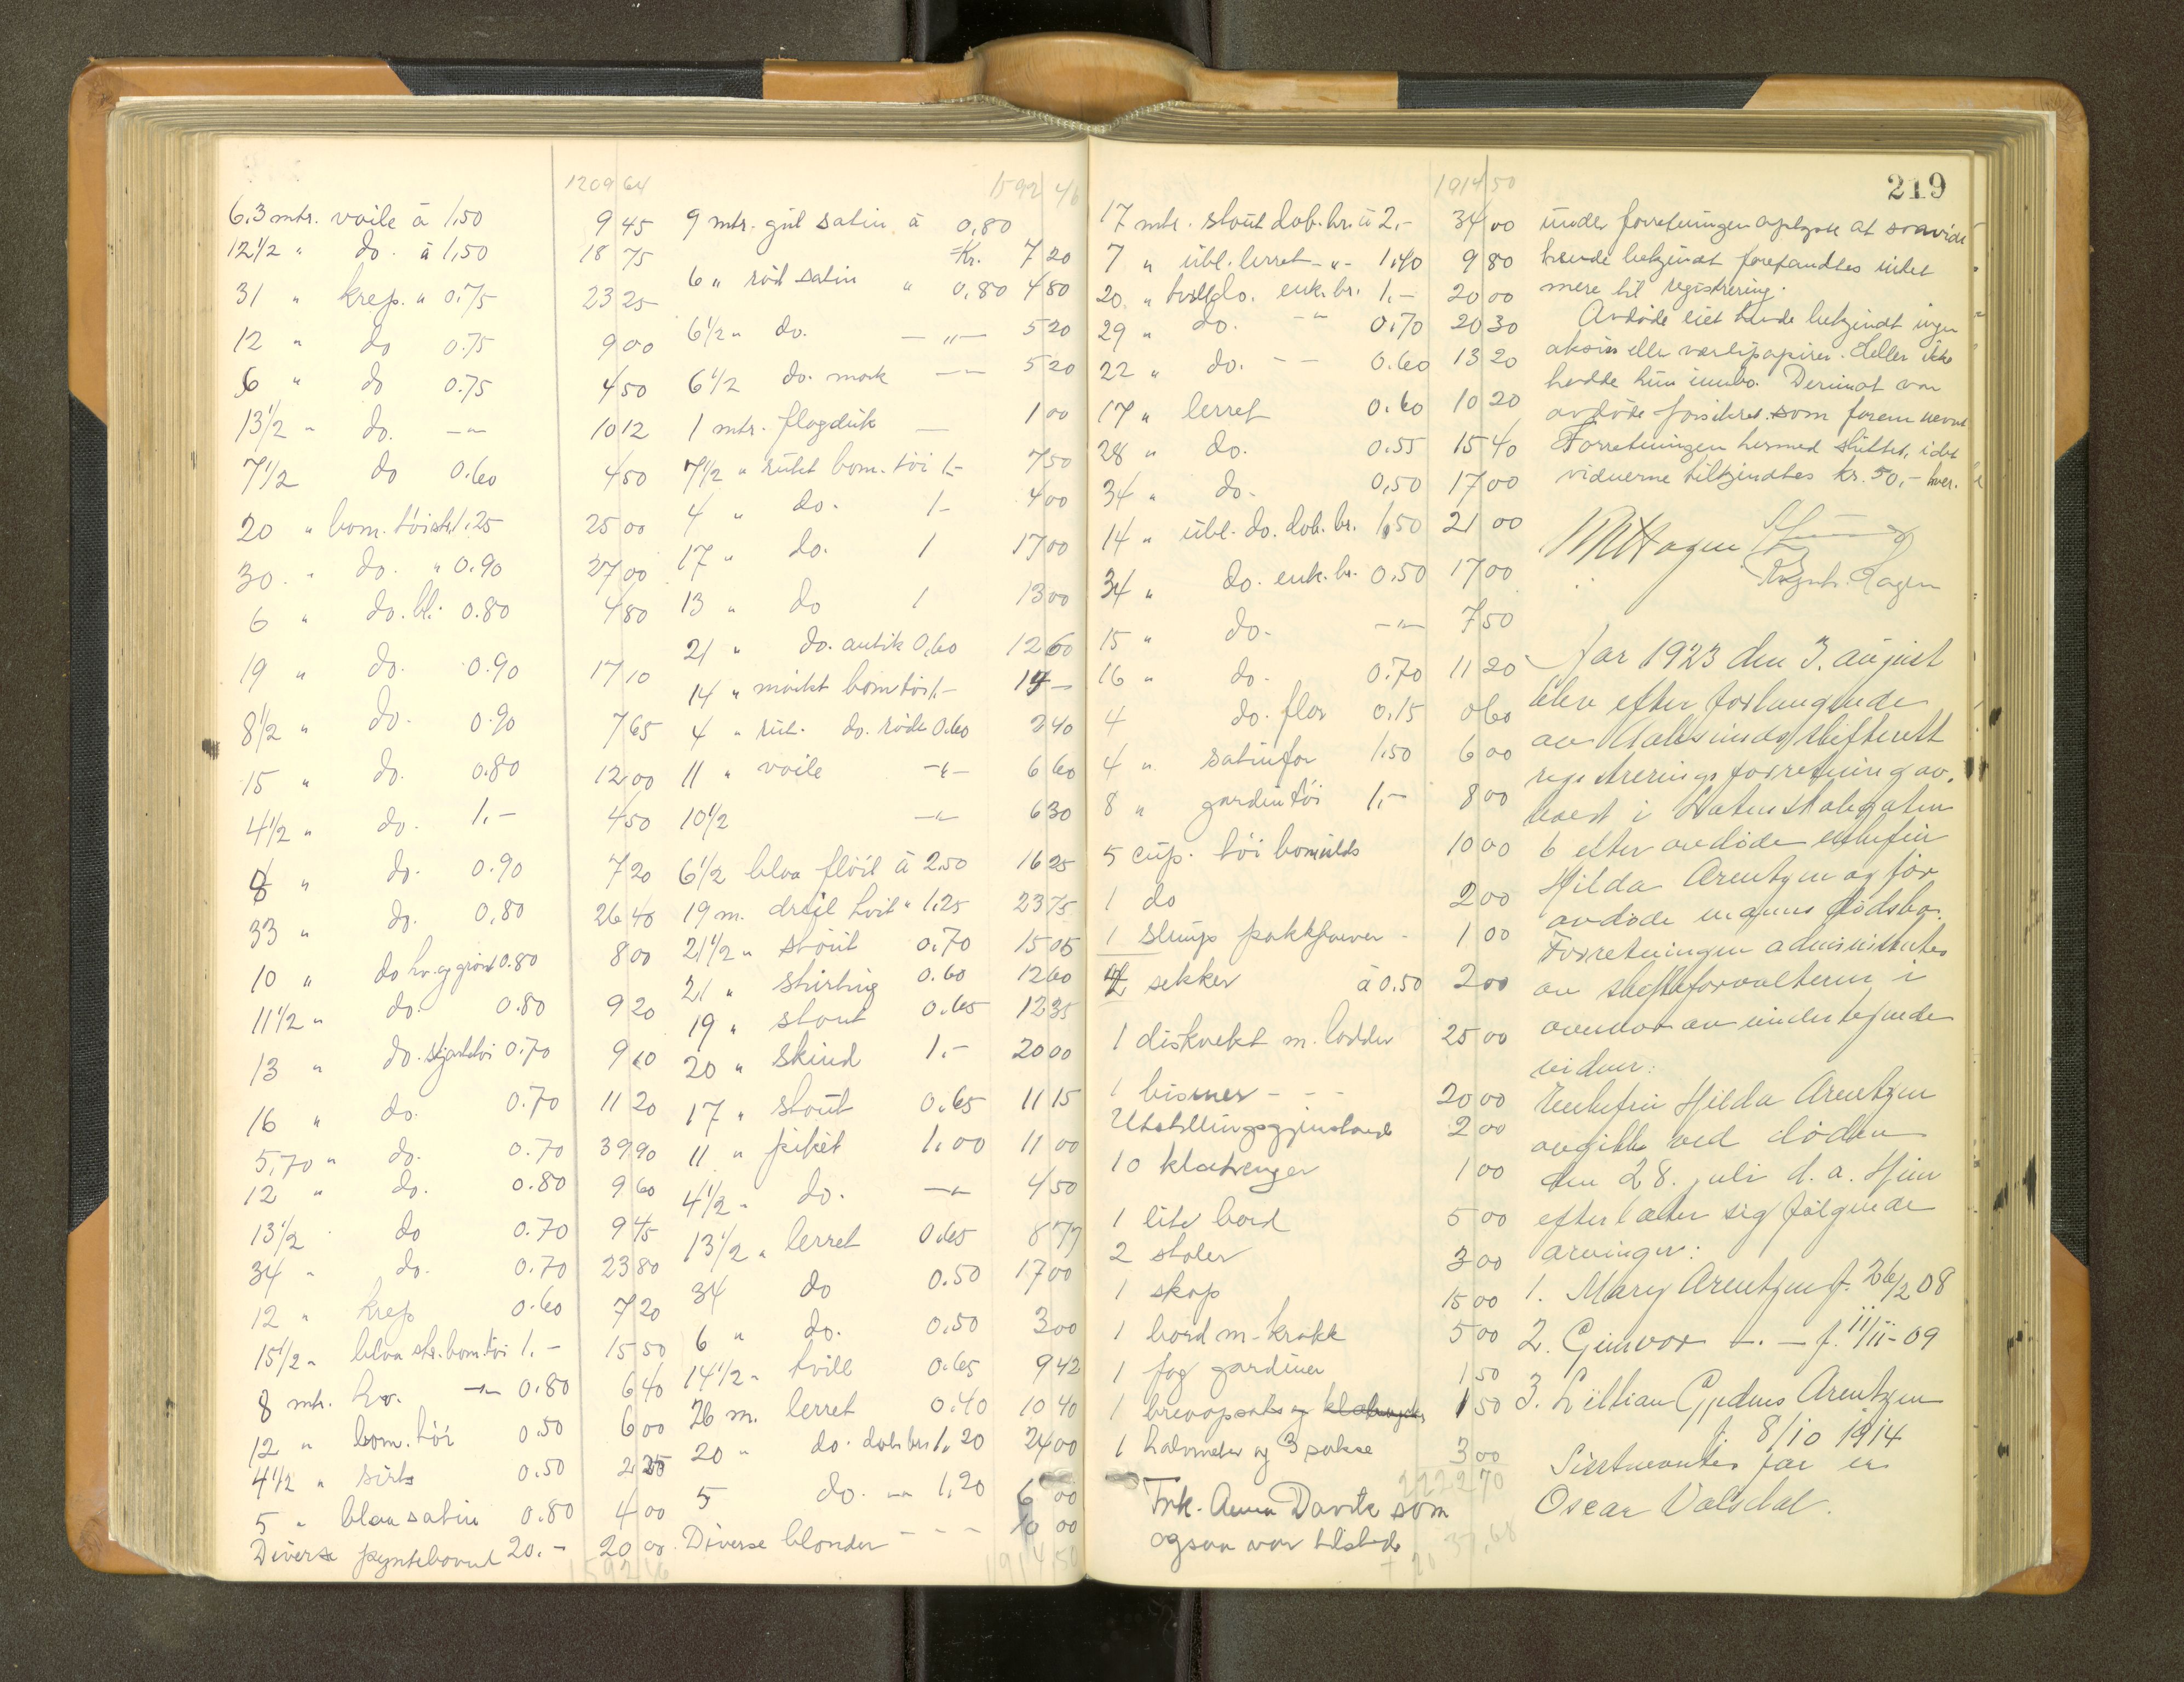 1209 64
6,3 mtr. voile à 1,50 9 45
12 1/2 " do. à 1,50 18 75
31 " krep. " 0.75 23 25
12 " do 0.75 9 00
6 " do 0.75 4 50
13 1/2 " do. -"- 10 12
7 1/2 do 0.60 4 50
20 " bom. töi str. 1.25 25 00
30. " do. " 0.90 27 00
6 " do. bl. 0.80 4 80
19 " do. 0.90 17 10
8 1/2 " do. 0.90 7 65
15 " do. 0.80 12 00
4 1/2 " do. 1.- 4 50
8 " do. 0.90 7 20
33 " do. 0,80 26 40
10 " do hv. og grönt 0.80 8 00
11 1/2 " do. 0.80 9 20
13 " do. skjortetöi 0.70 9 10
16 " do. 0.70 11 20
5,70 " do. 0.70 39 90
12 " do. 0.80 9 60
13 1/2 do 0.70 9 45
34 " do. 0.70 23 80
12 " krep 0.60 7 20
15 1/2 " blaa str. bom. töi 1.- 15 50
8 mtr. hv. -"- 0.80 6 40
12 " bom. töi 0.50 6 00
4 1/2 " sirts 0.50 2 25
5 " blaa satin 0.80 4 00
Diverse pyntebaand 20.- 20 00
1592 46
1592 46
9 mtr. gul satin à 0,80
Kr. 7 20
6 " röd satin " 0,80 4 80
6 1/2 " do. -"- 5 20
6 1/2 do. mörk -"- 5 20
1 mtr. flagduk - 1 00
7 1/2 " rutet bom. töi 1.- 7 50
4 " do. 1- 4 00
17 " do. 1 17 00
13 " do 1 13 00
21 " do. antik 0,60 12 60
14 " mörkt bomtöi 1.- 14 -
4 " rut. do. röde 0.60 2 40
11 " voile -"- 6 60
10 1/2 -"- 6 30
6 1/2 blaa flöil à 2,50 16 25
19 m. dreil hvit " 1.25 23 75
21 1/2 " stout 0.70 15 05
21 " shirting 0.60 12 60
19 " stout 0.65 12 35
20 " skind 1.- 20 00
17 " stout 0.65 11 15
11 " piket 1.00 11 00
4 1/2 " do. -"- 4 50
13 1/2 " lerret 0.65 8 77
34 do 0.50 17 00
6 " do. 0.50 3 00
14 1/2 " tvill 0.65 9 42
26 m. lerret 0.40 10 40
20 " do. dob. br. 1.20 24 00
5 do. -"- 1.20 6 00
Diverse blonder - - - 10 00
1914,50
1914 50
17 mtr. stout dob. br. à 2.- 34 00
7 " ubl. lerret -"- 1.40 9 80
20 " tvill do. enk. br. 1.- 20 00
29 " do. -"- 0.70 20 30
22 " do. - - 0.60 13 20
17 " lerret 0.60 10 20
28 " do. 0.55 15 40
34 " do. 0,50 17 00
14 " ubl. do. dob. br. 1,50 21 00
34 " do. enk. br. 0.50 17 00
15 " do. -"- 7 50
16 " do. 0.70 11 20
4 do. flor 0.15 0 60
4 " satinfor 1.50 6 00
8 " gardintöi 1.- 8 00
5 cup. töi bomulds 10 00
1 do 2 00
1 slump pakkfarver - 1 00
4 sekker à 0.50 2 00
1 diskvekt m. lodder 25 00
1 bismer - - - 20 00
Utstillingsgjenstande 2 00
10 klæshenger 1 00
1 lite bord 5 00
2 stoler 3 00
1 skap 15 00
1 bord m. krakk 5 00
1 fag gardiner 1 50
1 brevopsats og 1 50
1 halvmeter og 3 sakse 3 00
2222 70
Frk. Anna Davik som
ogsaa var tilstede
37,68
219
under forretningen oplyste at saavidt
hende bekjendt forefandtes intet
mere til registrering.
Avdöde eiet hende bekjendt ingen
aksier eller værdipapirer. Heller ikke
hadde hun innbo. Derimot var
avdöde forsikret som foran nevnt
Forretningen hermed sluttet, idet
vidnerne tilkjendtes kr. 50,- hver.
M Hagen
Hagen
Aar 1923 den 3. august
blev efter forlangende
av Aalesunds skifterett
registreringsforretning av-
holdt i gaten
6 efter avdöde enkefru
Hilda Arentzen og för
avdöde manns dödsbo.
Forretningen administrertes
av skifteforvalteren i
overvær av undertegnede
vidner:
Enkefru Hilda Arentzen
avgikk ved döden
den 28. juli d. a. Hun
efterlater sig fölgende
arvinger:
1. Mary Arentzen f. 26/2 08
2. Gunvor -. - f. 11/11-09
3. Lillian Arentzen
f. 8/10 1914
Sistnevntes far er
Oscar Valdal.